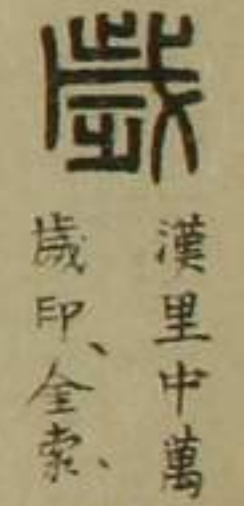 歲
漢里中萬
歲印、全索、